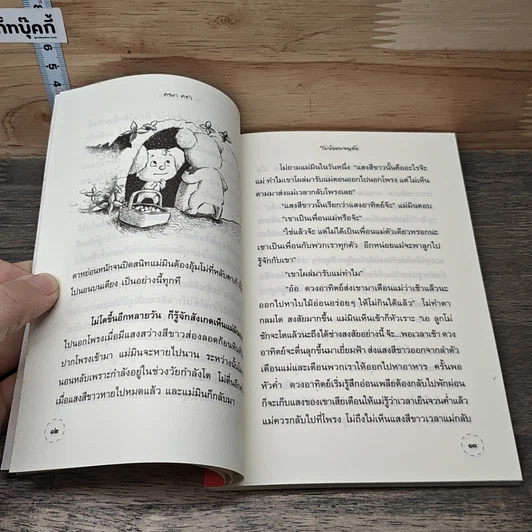 ท็กบุ๊คกี้
6 5 4
ตาหย่อนหนักจนปิดสนิทแม่มินต้องอุ้มโม่ที่หลับคา
ไปนอนบนเตียง เป็นอย่างนี้ทุกที
โมโตขึ้นอีกหลายวัน ก็รู้จักสังเกตเห็นแม่มิน
ไปนอกโพรงเมื่อมีแสงสว่างสีขาวส่องลอดก้อนหิน
ปากโพรงเข้ามา แม่มินจะหายไปนาน ระหว่างนั้น
นอนหลับเพราะกำลังอยู่ในช่วงวัยกำลังโต โม่ตื่น
เมื่อแสงสีขาวหายไปหมดแล้ว และแม่มินก็กลับมา
๑๒
โม่ถามแม่มินในวันหนึ่ง "แสงสีขาวนั้นคืออะไรจ๊ะ
แม่ ทำไมเขาโผล่มารับแม่ตอนออกไปนอกโพรง แต่ไม่เห็น
ตามมาส่งแม่เวลากลับโพรงเลย"
"แสงสีขาวนั้นเรียกว่าแสงอาทิตย์จ้ะ" แม่มินตอบ
"เขาเป็นเพื่อนแม่หรือจ๊ะ"
"ใช่แล้วจ้ะ แต่ไม่ได้เป็นเพื่อนแม่ตัวเดียวหรอกนะ
เขาเป็นเพื่อนกับพวกเราทุกตัว อีกหน่อยแม่จะพาลูกไป
รู้จักกับเขา"
"เขาโผล่มารับแม่ทำไม"
"อ๋อ ดวงอาทิตย์เขาส่งแสงมาบอกแม่ว่าเช้าแล้วนะ
ออกไปหาใบไม้อ่อนอร่อยๆ ให้โม่กินได้แล้ว" โม่ทำตา
กลมโต สงสัยมากขึ้น แม่มินเห็นเข้าก็หัวเราะ "เอ ลูกโม่
ชักจะโตแล้วนะถึงได้ช่างสงสัยอย่างนี้ จ้ะ...พอเวลาเช้า ดวง
อาทิตย์จะตื่นลุกขึ้นมาเยี่ยมฟ้า ส่งแสงสีขาวออกจากลำตัว
เตือนแม่และเตือนพวกเราให้ออกไปหาอาหาร ครั้นพอ
หัวค่ำ ดวงอาทิตย์เริ่มรู้สึกอ่อนเพลียต้องกลับไปพักผ่อน
ก็จะเก็บแสงของเขาเสียเตือนให้แม่รู้ว่าเวลาเย็นจวนค่ำแล้ว
แม่ควรกลับไปที่โพรง โม่ถึงไม่เห็นแสงสีขาวเวลาแม่กลับ
๑๓